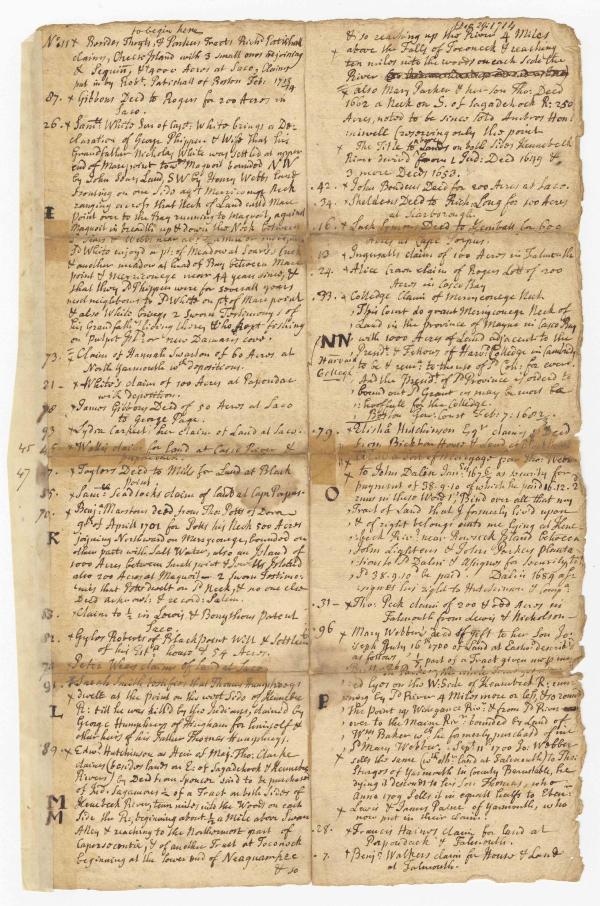 to begin here
No. 11 + Besides Thoyts, & Parkers Tracts Richd. Patishall
claims, Cheeks Island with 3 small ones adjoining
& Sequin, & 4000 Acres at Saco, Claims
put in by Robt. Patishall of Boston Feb. 1713/14
87. + Gibbons Deed to Rogers for 200 Acres in
Saco.
26. + Saml. White Son of Capt. White brings a De-
claration of George Phippen & Wife that his
Grandfather Nicholas White was settled at upper
end of Mare point to Maquoit bounded NW
by John Sears Land, SW by Henry Webbs Land
fronting on one side agst Merriconege Neck
ranging across that Neck of Land called Mare
I
point over to the Bay running to Maquoit, against
Maquoit in breadth up & down the Neck between
Sears & Webbs near
Sd White enjoyd a pt. of Meadow at Sears's
& another meadow at head of Bay between Mare
point & Merriconege near 40 years since, &
that they Sd Phippen were for severall years
next neighbours to Sd White on pt. of Mare point
& also White brings 2 Sworn Testimonys of
his Grandfathrs living there, & he kept fishing
on Pulpit Isld. or New Damariscove.
73. Claim of Hannah Swarton of 60 Acres at
North Yarmouth wth. depositions.
21 - + White's claim of 100 Acres at Papoudac
with deposition.
+ James Gibbons Deed of 50 Acres at Saco
to George Page.
93 + Lydia her claim of Land at Saco.
45 45 + Wallis claim for land at Casco River &
47 7. + Taylors Deed to Mills for Land at Black
Point.
85. + Saml. Scadlocks claim of land at Cape Porpus.
70. + Benj. Marstons deed from Tho. Potts of Dover
9th of Aprill 1701 for Potts his Neck 500 Acres
K
joining Northward on Merryconege, bounded on
other parts with Salt Water, also an Island of
1000 Acres between Small point &
also 200 Acres at Maquoit - 2 Sworn Testimo-
nies that Potts dwelt on Sd. Neck, & no one else
Deed acknowl. & record: Salem.
83. + Claim to 1/2 in Lewis & Bonythons Patent
Saco.
82. + Gyles Roberts of Black point Will & Settlemt
of his Estt. house & 54 Acres.
74 Peter Wears claim of land at Saco
91 + Sarah Smith testifies that Thomas Humphreys
+ dwelt at the point on the west Side of Kennebec
L
Rr. till he was killed by the Indians, claimed by
George Humphreys of Hingham for himself &
other heirs of his Father Thomas Humphreys.
89. + Edwd. Hutchinson as Heir of Maj. Tho. Clarke
claims (besides lands on E. of Sagadehock & Kennebec
Rivers) by Deed from Spencer
of Jno. Sagamore 1/2 of a Tract on both Sides of
MM
Kenebeck River, ten miles into the Woods on each
Side the Rr. beginning about 1/2 a Mile above Swan
Alley & reaching to the Northermost part of
Caposocontic, & of another Tract at Toconock
beginning at the Lower end of Neaguamkee
& so
Decr. 29. 1714
& so reaching up the River 4 Miles
above the Falls of Toconock & reaching
ten miles into the woods on each Side the
River
also Mary Parker & her son Tho: Deed
1662 a Neck on S. of Sagadehock Rr. 250
Acres, noted to be since sold Ambros Hon-
niwell (reserving only the point
+ The Title to above Lands on both Sides Kennebeck
River derived from 1 Ind: Deed 1649 &
3 more Deeds 1653.
42. + John Bondens Deed for 200 Acres at Saco.
34. + Sheldens Deed to Rich. Long for 100 Acres
at Scarborough.
16. Luck Symons Deed to Kemball for 600
Acres at Cape Porpus.
12 + Ingersalls claim of 100 Acres in Falmouth
24. + Alice claim of Rogers Lot of 200
Acres in Casco Bay
33. + Colledge Claim of Merryconege Neck
This Court do grant Merryconege Neck of
NN
Land in the province of Mayne in Casco Bay
with 1000 Acres of Land adjacent to the
Harvard
College
Presidt. & Fellows of Harvd. Colledge in Cambridge
to be & remn. to the use of Sd Coll: for ever.
And the Presidt. of Sd Province is orderd to
bound out Sd Grant as may be most be-
hoofull for the Colledge.
Boston Genl. Court Feb: 7: 1682.
79. + Elisha Hutchinson Esqr claims
tion Bickton House & Land
to John Dalen Jan: 1675/6 as security for
payment of 38.9.10 of which he paid 16.12.2
runs in these Words I Bind over all that my
O
Tract of Land that I formerly lived upon
& of right belongs unto me lying at Kene-
beck River near Arowsick Island between
John Lightons & John Parkers planta-
tions to Sd Dalin & Assigns for security
Sd 38.9.10 be paid. Dalin 1684 as-
signes his right to Hutchinson
31 - + Tho. Peck claim of 200 & odd Acres in
Falmouth from Lewis & Nicholson
96 + Mary Webbers Deed of Gift to her Son Jo-
seph July 16. 1700 of Land at
as follows 1/2 part of a Tract given
P
and lyes on the W. Side of Kennebeck Rr. runn-
ing by Sd River 4 Miles more or less, & so round
the point up Winigance Rivr. & from Sd River
over to the Maine Rivr. bounded by Land of
Wm. Baker wch. he formerly purchased of me
Sd Mary Webber. Sept 11th 1700 Jo: Webber
sells the same (wth. other land at Falmouth) to Tho:
Sturges of Yarmouth in County Barnstable, he
dying it descends to his son Thomas, who in
Anno 1709 Sells it in equal halfs to Eben:
Lewis & James Paine of Yarmouth, who
now put in their claim.
28. + Francis Haines claim for land at
Papoudeck & Falmouth.
7. + Benj. Walkers claim for House & Land
at Falmouth.